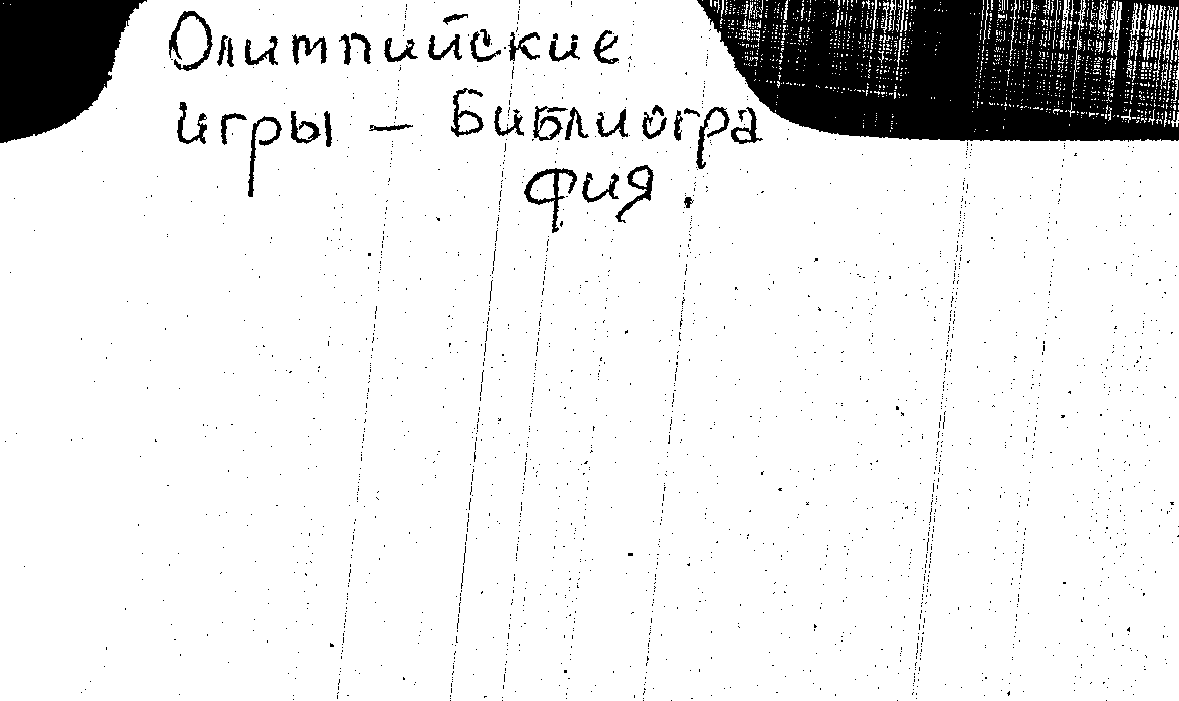 Олимпийские
игры — Библиогра
фия.